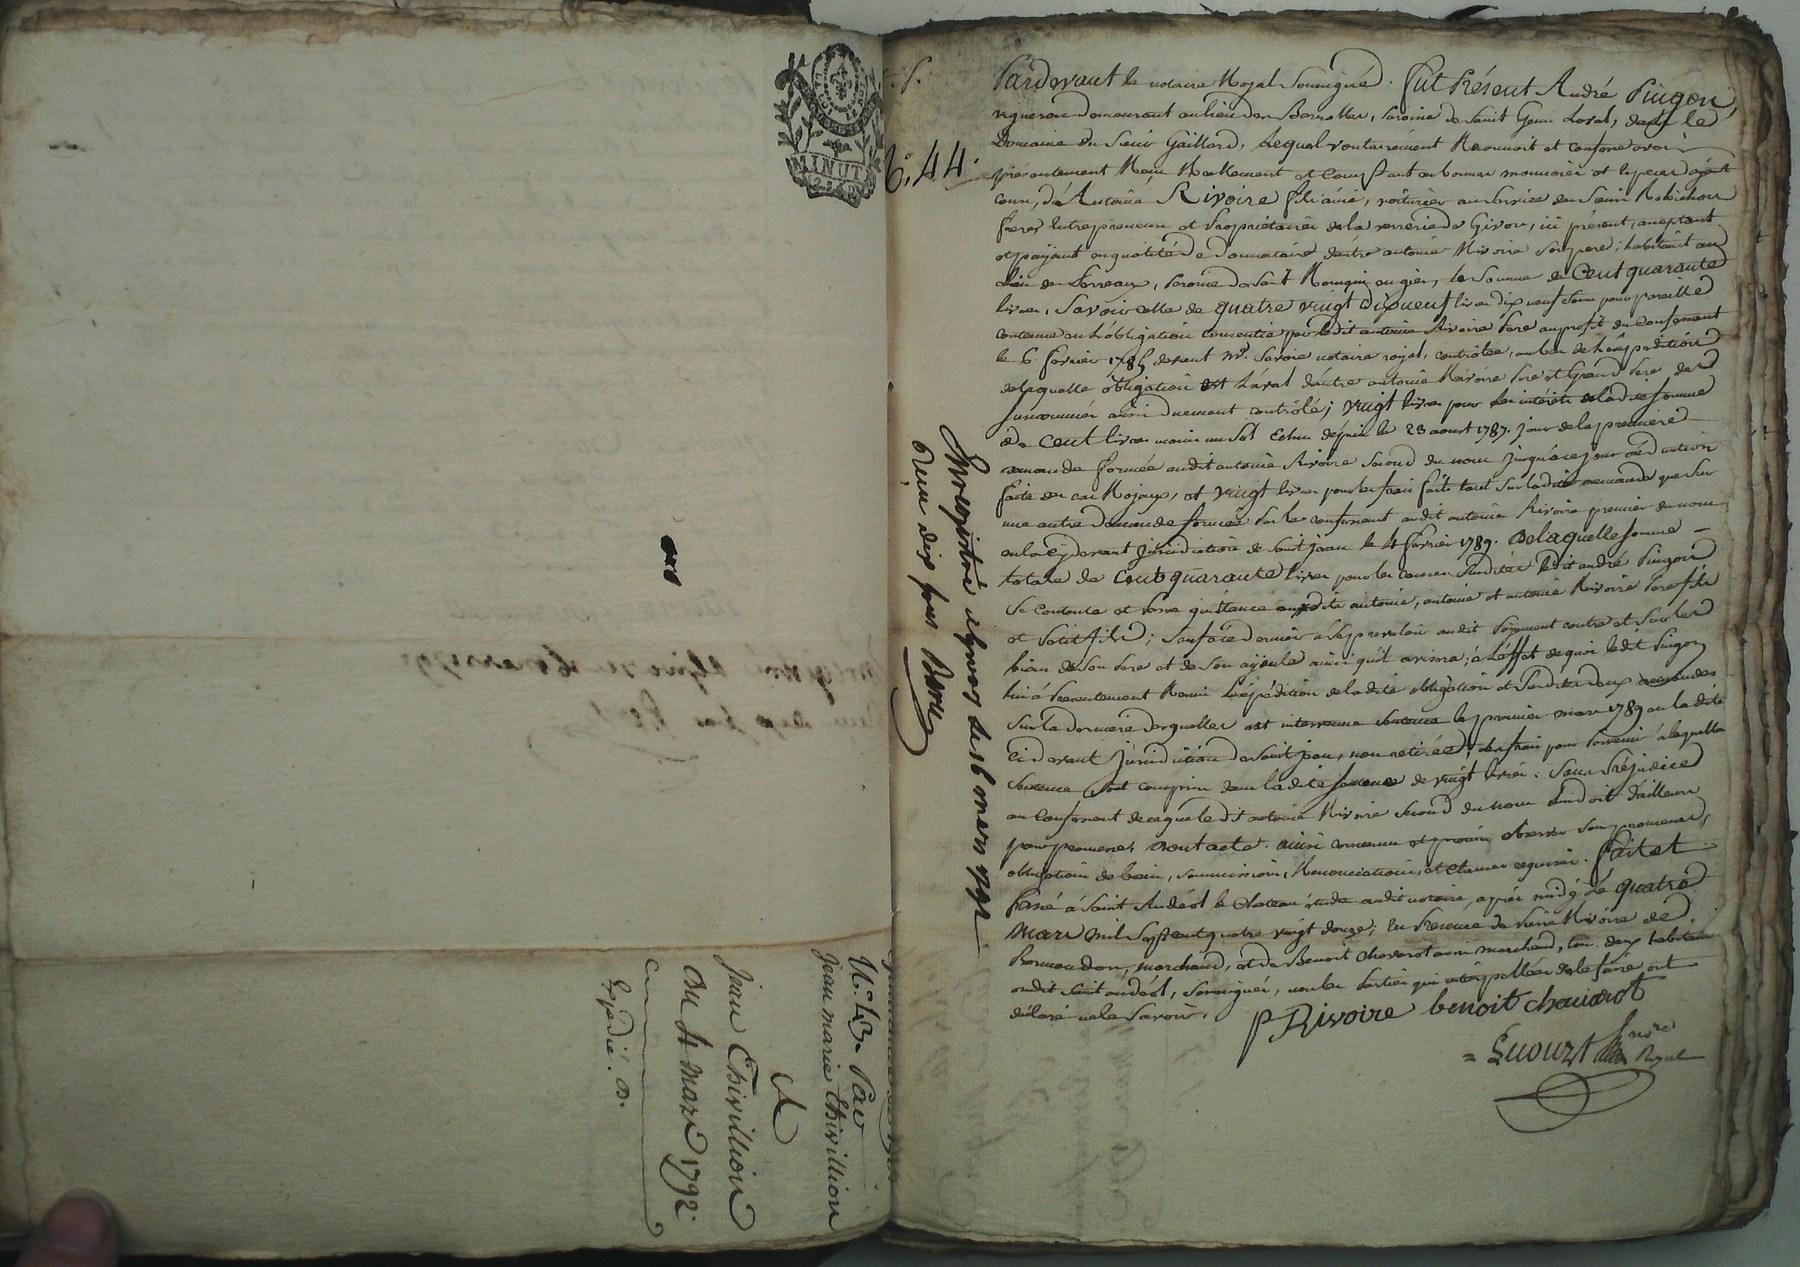 MINUT
N.° 43. Par
jean marie Thivillion
A
Jean Thivillion
Du 4 mars 1792.
Expédié. D.
N.° 44.
Enregistré à Givors le 16 mars 1792
Reçu dix sous
Pardevant le notaire Royal soussigné. Fut Présent André Pingon,
vigneron demeurant au lieu des Barolles, paroisse de Saint Genis Laval, dans le
Domaine du Sieur Gaillard, Lequel volontairement Reconnoit et confesse avoir
présentement Reçu Réellement et Comptant en bonnes monnoies et espèces ayant
cours, d'Antoine Rivoire fils ainé, voiturier au service des Sieurs Robichon
freres Entrepreneurs et Propriétaires de la verrerie de Givors, ici présent, acceptant
et payant en qualité de Donnataire d'autre antoine Rivoire son pere; habitant au
Lieu de , paroisse de Saint Romain en gier, la Somme de Cent quarante
livres, Savoir celle de quatre vingt dix neuf livres dix neuf sous pour pareille
contenue en L'obligation consentie par ledit antoine Rivoire Pere au profit du Confessant
le 6 fevrier 1785 devant Me. Savoie notaire royal, contrôlée, au bas de L'expédition
de laquelle obligation est L'aval d'autre antoine Rivoire Pere et Grand Pere des
susnommés aussi duement contrôlé; vingt livres pour les intérêts de ladite somme
de Cent livres moins un sol Echus depuis le 23 aoust 1787. jour de la premiere
demande formée audit antoine Rivoire second du nom jusqu'à ce jour déduction
faite des cas Royaux, et vingt livres pour les frais faits tant sur ladite demande que sur
une autre Demande formée par le confessant audit antoine Rivoire premier du nom
en la cydevant Jurisdiction de Saint jean le 4 fevrier 1789. De laquelle somme
totale de Cent quarante livres pour les causes susdites ledit andré Pingon
se contente et passe quittance auxdits antoine, antoine et antoine Rivoire Pere fils
et Petit fils; sauf à ce dernier à se prévaloir audit payement contre et sur les
biens de son Pere et de son ayeul ainsi qu'il avisera; à L'effet de quoi ledit Pingon
lui à Présentement Remis L'expédition de ladite obligation et susdites deux demandes
sur la derniere desquelles est intervenue sentence le premier mars 1789 en la dite
ci devant jurisdiction de Saint jean, non retirée; les frais pour parvenir à laquelle
sentence sont compris dans ladite somme de vingt livres: Sans Préjudice
au Confessant de ce que ledit antoine Rivoire second du nom lui doit d'ailleurs
pour promesse; dont acte. ainsi convenu et promis observer sous promesses,
obligation de biens, soumissions, Renonciations, et clauses requises. Fait et
Passé à Saint Andéol le Chateau étude dudit notaire, après midy Le quatre
Mars mil Sept cent quatre vingt douze; En Présence de Pierre Rivoire de
, marchand, et de Benoit Chavarot aussi marchand, tous deux habitans
audit Saint andéol, soussignés, non les Parties qui interpellées de le faire ont
déclaré ne le savoir.
P Rivoire benoit chavarot
nore Royal